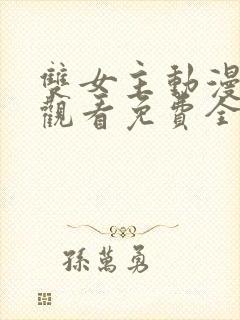 雙女主動漫
觀看免費全
孫萬勇